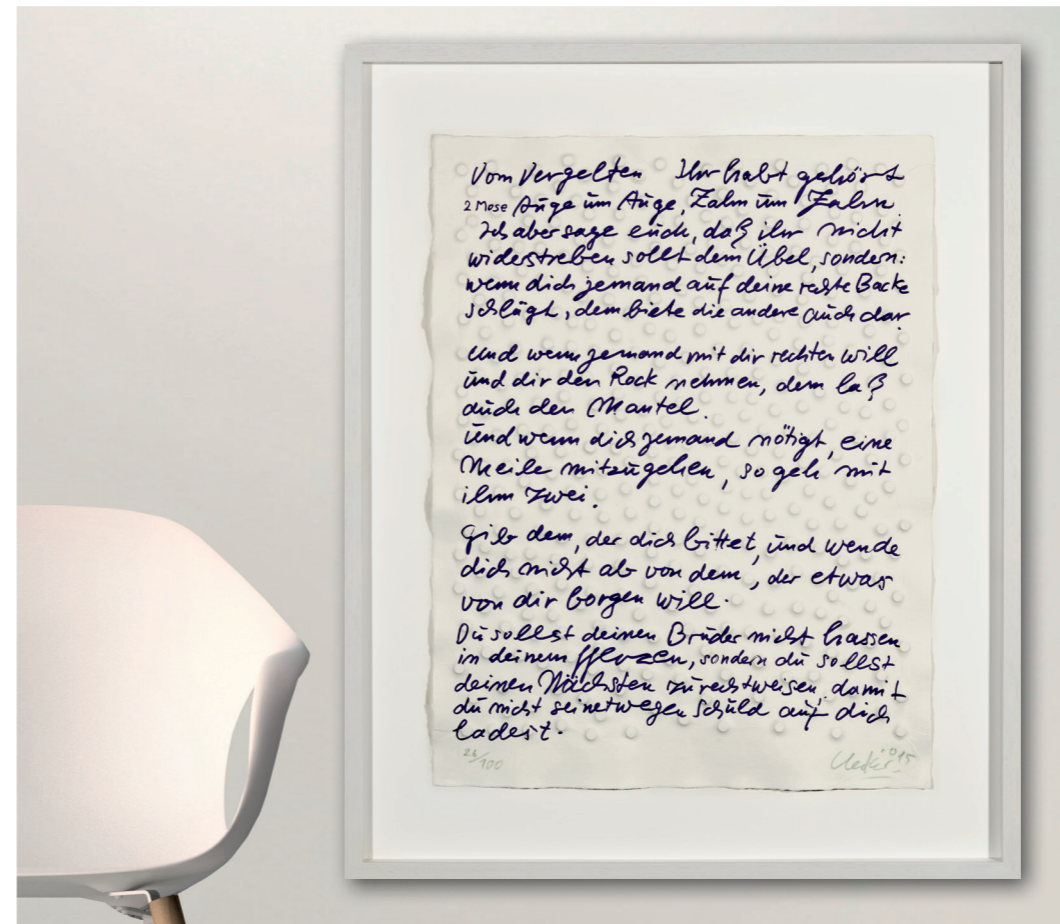 Vom Vergelten Ihr habt gehört
2 Mose Auge um Auge, Zahn um Zahn
Ich aber sage euch, daß ihr nicht
widerstreben sollt dem Übel, sondern:
wenn dich jemand auf deine rechte Backe
schlägt, dem biete die andere auch dar
Und wenn jemand mit dir rechten will
und dir den Rock nehmen, dem laß
auch den Mantel.
Und wenn dich jemand nötigt, eine
Meile mitzugehen, so geh mit
ihm zwei.
Gib dem, der dich bittet, und wende
dich nicht ab von dem, der etwas
von dir borgen will.
Du sollst deinen Bruder nicht hassen
in deinem Herzen, sondern du sollst
deinen Nächsten zurechtweisen, damit
du nicht seinetwegen Schuld auf dich
ladest.
/100 Uecker '015